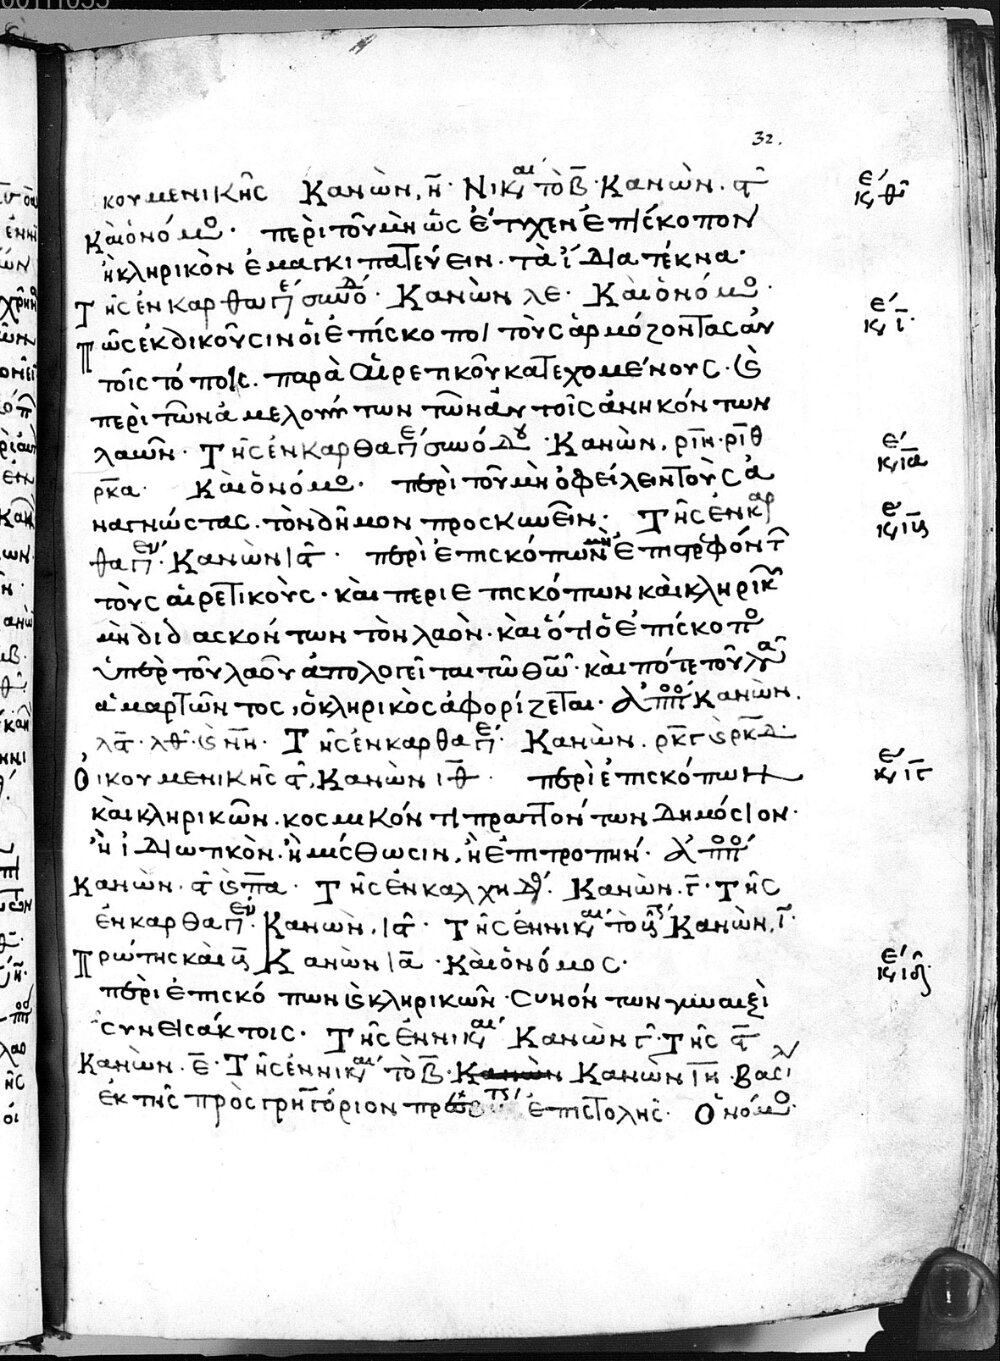 32.
κουμενικῆς Κανὼν, η̄· Νικ αι τὸ β̄· Κανὼν. α̅
ε΄ κ, θ
Καὶ ὁ νόμο· περὶ τοῦ μὴ ὡς ἔτυχεν ἐπίσκοπον
ἢ κληρικὸν ἐμαγκιπατεύειν· τὰ ἴδια τέκνα·
Τῆς ἐν Καρθαγ ε΄ συνόδ· Κανὼν λε· Καὶ ὁ νόμο·
ε΄ κ, ι̅·
Πῶς ἐκδικοῦσιν οἱ ἐπίσκοποι τοὺς ἁρμόζοντας αὐ
τοῖς τόποις. παρὰ αἱρετικοῦ κατεχομένους· ϗ
περὶ τῶν ἀμελούντων τῶν αὐτοῖς ἀνηκόντων
λαῶν· Τῆς ἐν Καρθαγ ε΄ συνόδου· Κανὼν. ριη· ριθ
ε΄ κ, ια
ρκα· Καὶ ὁ νόμο. περὶ τοῦ μὴ ὀφείλειν τοὺς ἀ
ναγνώστας. τὸν δῆμον προσκυνεῖν· Τῆς ἐν καρ
ε΄ κ, ιβ
θαγ εν΄· Κανὼν ια̅· περὶ ἐπισκόπων μὴ ἐπιστρεφόντ
τοὺς αἱρετικοὺς· καὶ περὶ ἐπισκόπων καὶ κληρικ
μὴ διδασκόντων τὸν λαὸν· καὶ ὅτι ὁ ἐπίσκοπο
ὑπὲρ τοῦ λαοῦ ἀπολογεῖται τῷ θῶ· καὶ πότε τοῦ λα
ἁμαρτῶντος, ὁ κληρικὸς ἀφορίζεται· ἀππο Κανὼν.
λα̅· λθ· ϗ νη· Τῆς ἐν Καρθαγ ε΄· Κανὼν. ρκγ ϗ ρκδ·
Οἰκουμενικῆς α̅, Κανὼν ιθ̅· περὶ ἐπισκόπων
ε΄ κ, ιγ
καὶ κληρικῶν. κοσμικόν τι πραττόντων δημόσιον·
ἢ ἰδιωτικὸν· ἢ μίσθωσιν, ἢ ἐπιτροπὴν· ἀππο
Κανὼν. α̅ ϗ πα· Τῆς ἐν Καλχηδ· Κανὼν. γ̅· Τῆς
ἐν Καρθαγ εν· Κανὼν. ια̅· Τῆς ἐν Νικ αι΄ τὸ β̅· Κανὼν, ι̅·
Πρώτης καὶ β̅ Κανὼν ια̅· Καὶ ὁ νόμος·
ε΄ κ, ιδ
περὶ ἐπισκόπων ϗ κληρικῶν· συνόντων γυναιξὶ
συνεισάκτοις· Τῆς ἐν Νικ αι΄ Κανὼν γ̅· Τῆς α̅
Κανὼν. ε̅· Τῆς ἐν Νικ αι΄ τὸ β̅· Κανὼν ιη· βασιλ
ἐκ τῆς πρὸς γρηγόριον ἐπιστολῆς· Ὁ νόμο·